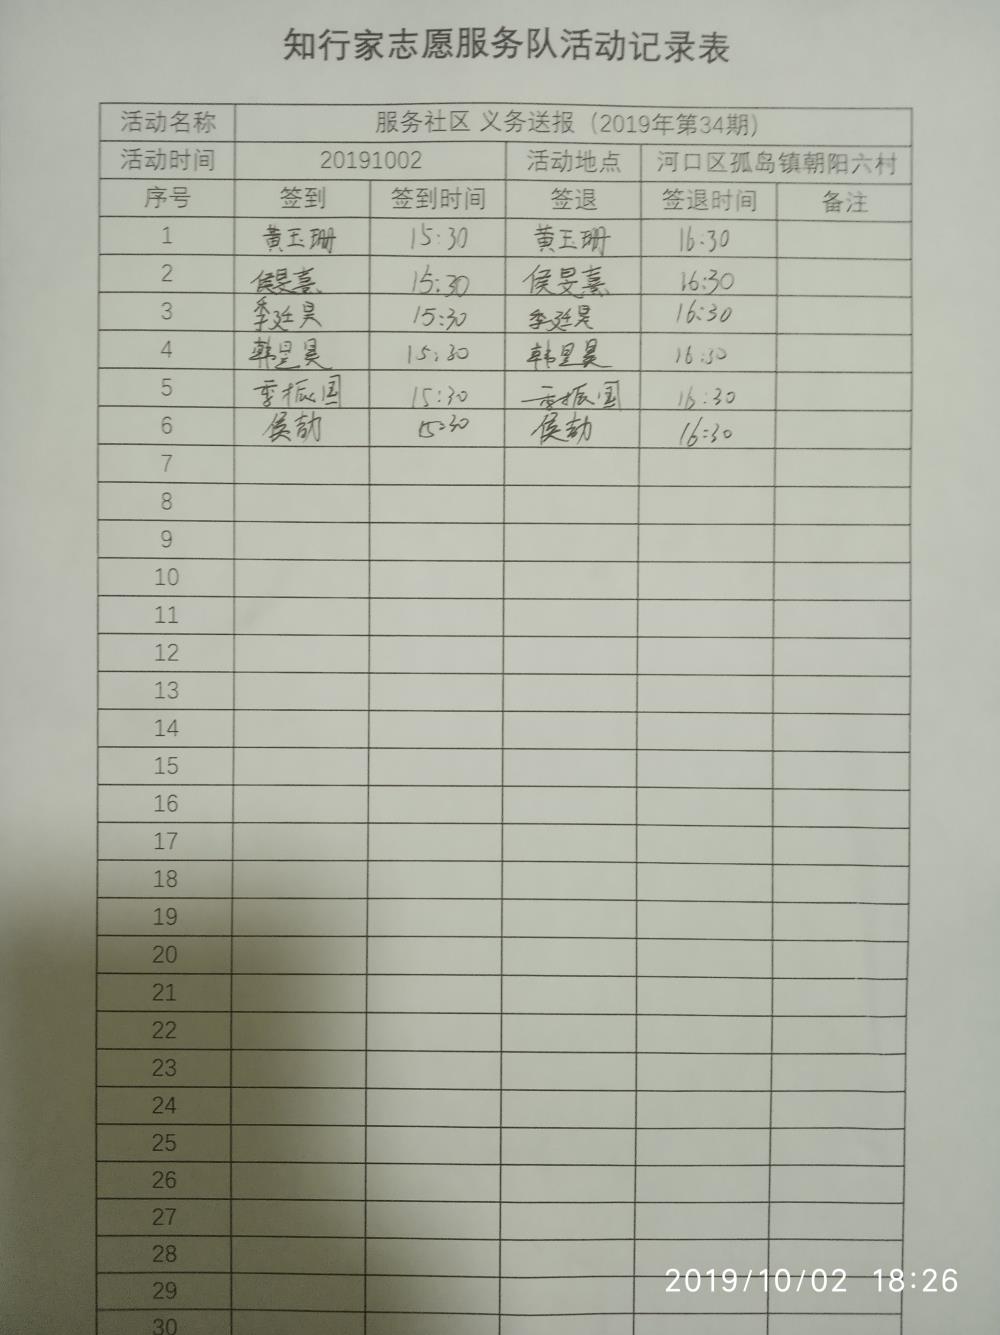 知行家志愿服务队活动记录表
活动名称 服务社区 义务送报（2019年第34期）
活动时间 20191002 活动地点 河口区孤岛镇朝阳六村
序号 签到 签到时间 签退 签退时间 备注
1 黄玉珊 15:30 黄玉珊 16:30
2 侯旻熹 15:30 侯旻熹 16:30
3 季廷昊 15:30 季廷昊 16:30
4 韩昱昊 15:30 韩昱昊 16:30
5 季振国 15:30 季振国 16:30
6 侯勃 15:30 侯勃 16:30
7
8
9
10
11
12
13
14
15
16
17
18
19
20
21
22
23
24
25
26
27
28
29
30
2019/10/02 18:26